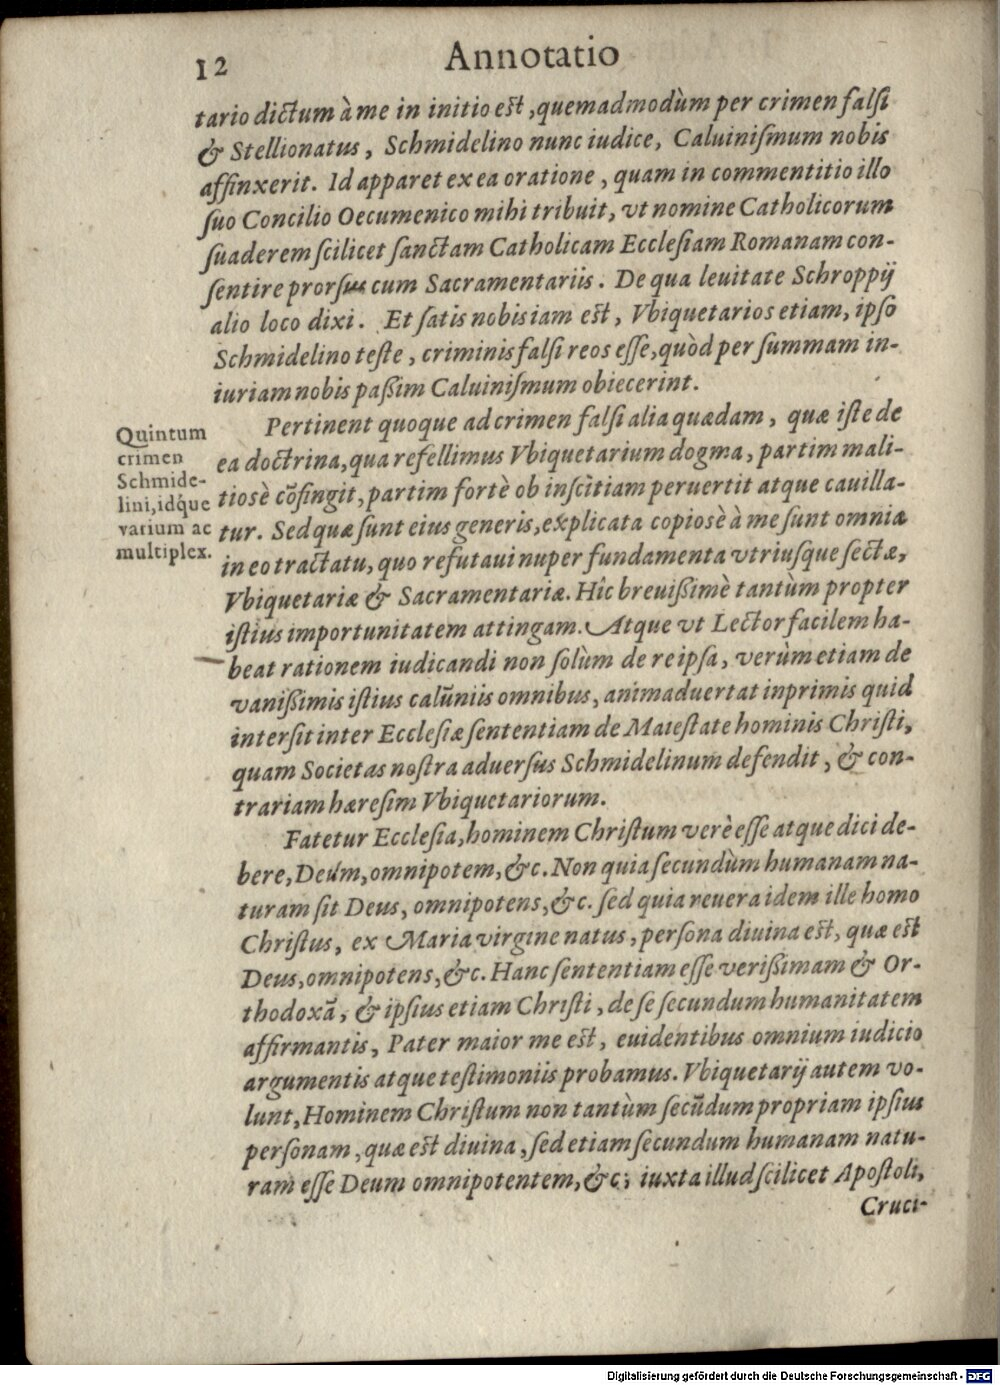 12
Annotatio
tario dictum à me in initio est, quemadmodùm per crimen falsi
& Stellionatus, Schmidelino nunc iudice, Caluiniſmum nobis
affinxerit. Id apparet ex ea oratione, quam in commentitio illo
ſuo Concilio Oecumenico mihi tribuit, vt nomine Catholicorum
ſuaderem ſcilicet ſanctam Catholicam Eccleſiam Romanam con-
ſentire prorſus cum Sacramentariis. De qua leuitate Schroppij
alio loco dixi. Et ſatis nobis iam est, Vbiquetarios etiam, ipſo
Schmidelino teſte, criminis falſi reos eſſe, quòd per ſummam in-
iuriam nobis paßim Caluiniſmum obiecerint.
Quintum
crimen
Schmide-
lini, idq́ue
varium ac
multiplex.
Pertinent quoque ad crimen falſi alia quædam, quæ iſte de
ea doctrina, qua refellimus Vbiquetarium dogma, partim mali-
tiosè cōfingit, partim fortè ob inſcitiam peruertit atque cauilla-
tur. Sed quæ ſunt eius generis, explicata copiosè à me ſunt omnia
in eo tractatu, quo refutaui nuper fundamenta vtriuſque ſectæ,
Vbiquetariæ & Sacramentariæ. Hîc breuißimè tantùm propter
iſtius importunitatem attingam. Atque vt Lector facilem ha-
beat rationem iudicandi non ſolùm de re ipſa, verùm etiam de
vanißimis iſtius calūniis omnibus, animaduertat inprimis quid
interſit inter Eccleſiæ ſententiam de Maieſtate hominis Chriſti,
quam Societas noſtra aduerſus Schmidelinum defendit, & con-
trariam hæreſim Vbiquetariorum.
Fatetur Eccleſia, hominem Chriſtum verè eſſe atque dici de-
bere, Deúm, omnipotem, &c. Non quia ſecundùm humanam na-
turam ſit Deus, omnipotens, &c. ſed quia reuera idem ille homo
Chriſtus, ex Maria virgine natus, perſona diuina est, quæ est
Deus, omnipotens, &c. Hanc ſententiam eſſe verißimam & Or-
thodoxã, & ipſius etiam Chriſti, de ſe ſecundum humanitatem
affirmantis, Pater maior me est, euidentibus omnium iudicio
argumentis atque teſtimoniis probamus. Vbiquetarij autem vo-
lunt, Hominem Chriſtum non tantùm ſecūdum propriam ipſius
perſonam, quæ est diuina, ſed etiam ſecundum humanam natu-
ram eſſe Deum omnipotentem, &c; iuxta illud ſcilicet Apoſtoli,
Cruci-
Digitalisierung gefördert durch die Deutsche Forschungsgemeinschaft - DFG